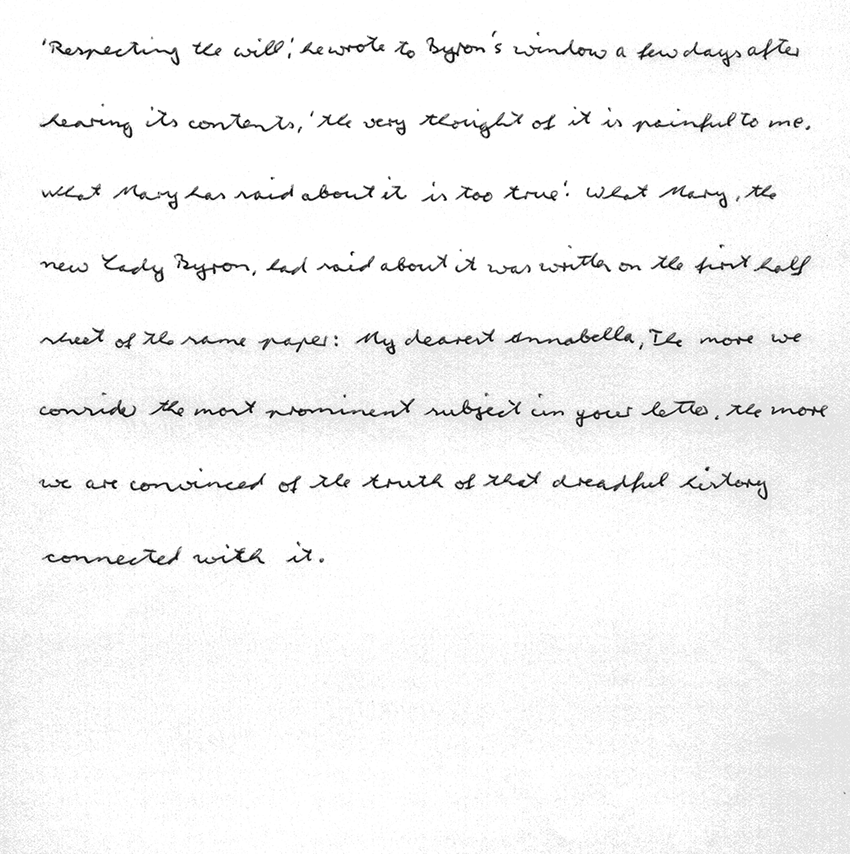 'Respecting the will,' he wrote to Byron's window a few days after
hearing its contents, 'the very thought of it is painful to me.
What Mary has said about it is too true'. What Mary, the
new Lady Byron, had said about it was written on the first half
sheet of the same paper: My dearest Annabella, The more we
consider the most prominent subject in your letter, the more
we are convinced of the truth of that dreadful history
connected with it.